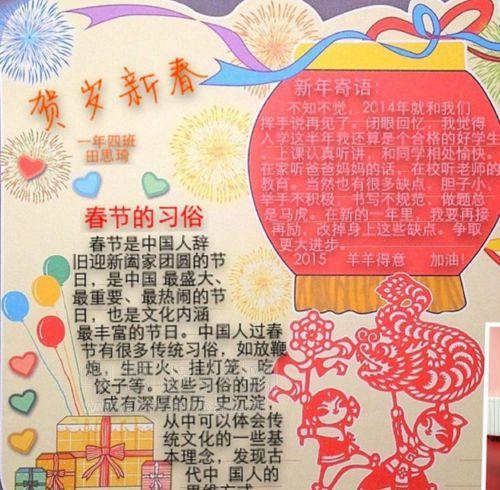 贺岁新春
一年四班
田思琦
春节的习俗
春节是中国人辞
旧迎新阖家团圆的节
日，是中国 最盛大、
最重要、最热闹的节
日，也是文化内涵
最丰富的节日。中国人过春
节有很多传统习俗，如放鞭
炮，生旺火、挂灯笼、吃
饺子等。这些习俗的形
成有深厚的历 史沉淀，
从中可以体会传
统文化的一些基
本理念，发现古
代中 国人的
思维方式
新年寄语：
不知不觉，2014年就和我们
挥手说再见了。闭眼回忆，我觉得
入学这半年我还算是个合格的好学生
。上课认真听讲，和同学相处愉快。
在家听爸爸妈妈的话，在校听老师的
教育。当然也有很多缺点，胆子小，
举手不积极，书写不规范，做题总
是马虎。在新的一年里，我要再接
再励，改掉身上这些缺点。争取
更大进步。
2015 羊羊得意 加油!